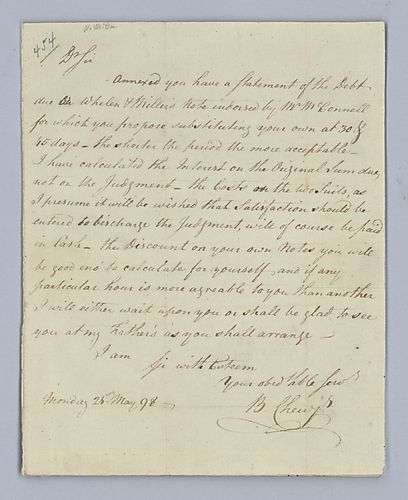 454
Dr Sir
Annexed you have a Statement of the Debt
due on Whelen & Miller's Note indorsed by Mr McConnell
for which you propose substituting your own at 30 &
45 days - the shorter the period the more acceptable -
I have calculated the Interest on the Original Sum due,
not on the Judgment - the Costs on the two Suits, as
I presume it will be wished that Satisfaction should be
entered to discharge the Judgment, will of course be paid
in Cash - the Discount on your own Notes you will
be good eno' to calculate for yourself, and if any
particular hour is more agreable to you than another
I will either wait upon you or shall be glad to see
you at my Father's as you shall arrange
I am Sir with Esteem
Your obed. Hble Servt
B Chew Jr
Monday 28 May 98 -